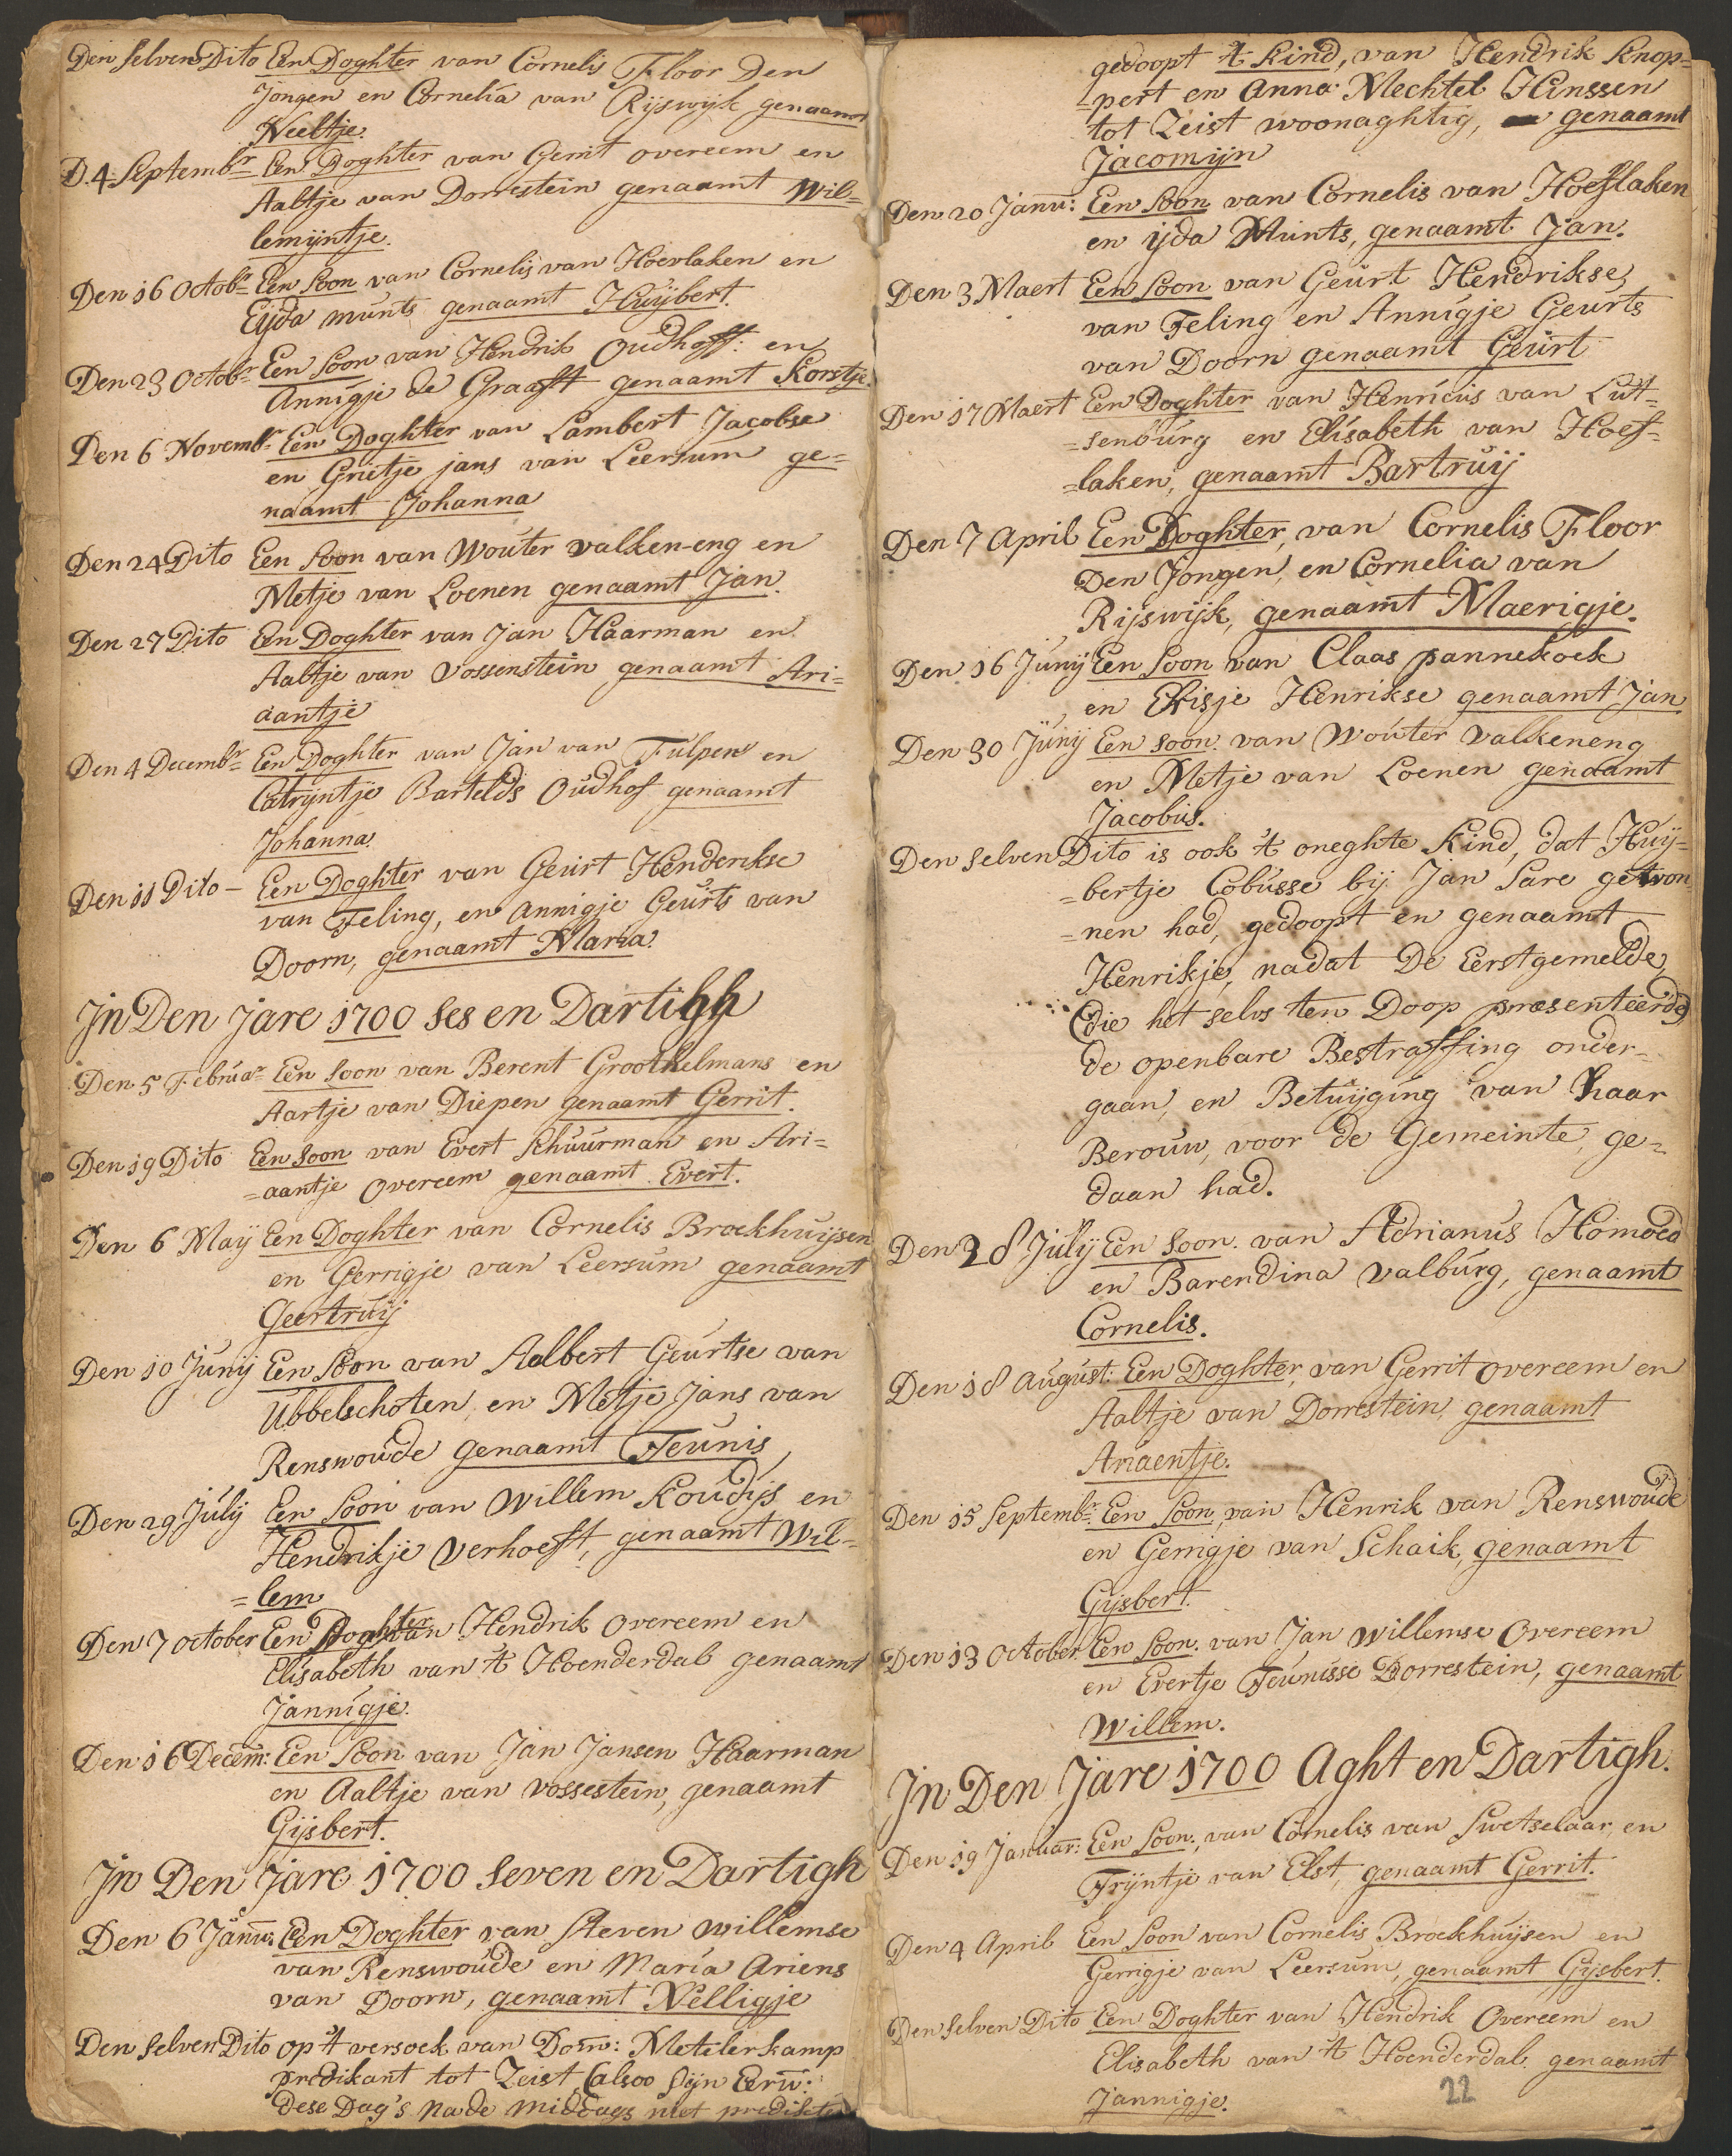 Den selven Dito Een Doghter van Cornelis Floor Den
Jongen en Cornelia van Rijswijk genaamt
Neeltje.
D. 4 Septembr Een Doghter van Gerrit overeem en
Aaltje van Dorrestein genaamt Wil=
lemijntje.
Den 16 Octobr Een Soon van Cornelis van Hoevlaken en
Eijda munts genaamt Huijbert.
Den 23 Octobr Een Soon van Hendrik Oudhoff: en
Annigje de Graaft genaamt Korstje.
Den 6 Novembr Een Doghter van Lambert Jacobse
en Grietje jans van Leersum ge=
naamt Johanna
Den 24 Dito Een Soon van Wouter valken-eng en
Metje van Loenen genaamt Jan.
Den 27 Dito Een Doghter van Jan Haarman en
Aaltje van Vossenstein genaamt Ari=
aantje
Den 4 Decembr Een Doghter van Jan van Tulpen en
Catrijntje Bartelds Oudhof genaamt
Johanna.
Den 11 Dito - Een Doghter van Geurt Henderikse
van Teling, en Annigje Geurts van
Doorn, genaamt Maria.
In Den Jare 1700 Ses en Dartigh
Den 5 Februar Een Soon van Berent Groothelmans en
Aartje van Diepen genaamt Gerrit.
Den 19 Dito Een Soon van Evert Schuurman en Ari=
=aantje Overeem genaamt Evert.
Den 6 Maij Een Doghter van Cornelis Broekhuijsen
en Gerrigje van Leersum genaamt
Geertruij
Den 10 Junij Een Soon van Aelbert Geurtse van
Ubbelschoten, en Metje Jans van
Renswoude genaamt Teunis,
Den 29 Julij Een Soon van Willem Koudijs en
Hendrikje Verhoeft, genaamt Wil=
=lem
Den 7 october Een Doghter van Hendrik Overeem en
Elisabeth van 't Hoenderdal genaamt
Jannigje.
Den 16 Decem: Een Soon van Jan Jansen Haarman
en Aaltje van Vossestein, genaamt
Gijsbert.
In Den Jare 1700 Seven en Dartigh
Den 6 Janu: Een Doghter van Steven Willemse
van Renswoude en Maria Ariens
van Doorn, genaamt Nelligje
Den selven Dito op 't versoek van Dom: Metelerkamp
predikant tot Zeist (alsoo Sijn Eerw:
dese Dag's Nade middags niet predikte
gedoopt 't Kind, van Hendrik Knop=
=pert en Anna Mechtel Hinssen
tot Zeist woonaghtig, genaamt
Jacomijn
Den 20 Janu: Een Soon van Cornelis van Hoeflaken
en ijda Munts, genaamt Jan.
Den 3 Maert Een Soon van Geurt Hendrikse,
van Teling en Annigje Geurts
van Doorn genaamt Geurt
Den 17 Maert Een Doghter van Henricus van Lut=
=senburg en Elisabeth van Hoef=
=laken, genaamt Bartruij
Den 7 April Een Doghter, van Cornelis Floor
Den Jongen, en Cornelia van
Rijswijk, genaamt Maerigje.
Den 16 Junij Een Soon van Claas pannekoek
en Elisje Henrikse genaamt Jan.
Den 30 Junij Een soon. van Wouter Valkeneng
en Metje van Loenen genaamt
Jacobus.
Den selven Dito is ook 't oneghte Kind, dat Huij=
=bertje Cobusse bij Jan Sare gewon
=nen had, gedoopt en genaamt
Henrikje, nadat De Eerstgemelde,
(die het selvs ten Doop præsenteerde)
de openbare Bestraffing onder=
gaan, en Betuijging van haar
Berouw, voor de Gemeinte, ge=
daan had.
Den 28 Julij Een Soon. van Adrianus Homoed
en Barendina Valburg, genaamt
Cornelis.
Den 18 August: Een Doghter, van Gerrit overeem en
Aaltje van Dorrestein, genaamt
Ariaentje.
Den 15 Septembr: Een Soon, van Henrik van Renswoude
en Gerrigje van Schaik, genaamt
Gijsbert.
Den 13 October Een Soon. van Jan Willemse Overeem
en Evertje Teunisse Dorrestein, genaamt
Willem.
In Den Jare 1700 Aght en Dartigh.
Den 19 Januar: Een Soon., van Cornelis van Swetselaar, en
Trijntje van Elst, genaamt Gerrit.
Den 4 April Een Soon van Cornelis Broekhuijsen en
Gerrigje van Leersum, genaamt Gijsbert.
Den selven Dito Een Doghter van Hendrik Overeem en
Elisabeth van 't Hoenderdal. genaamt
Jannigje.
22